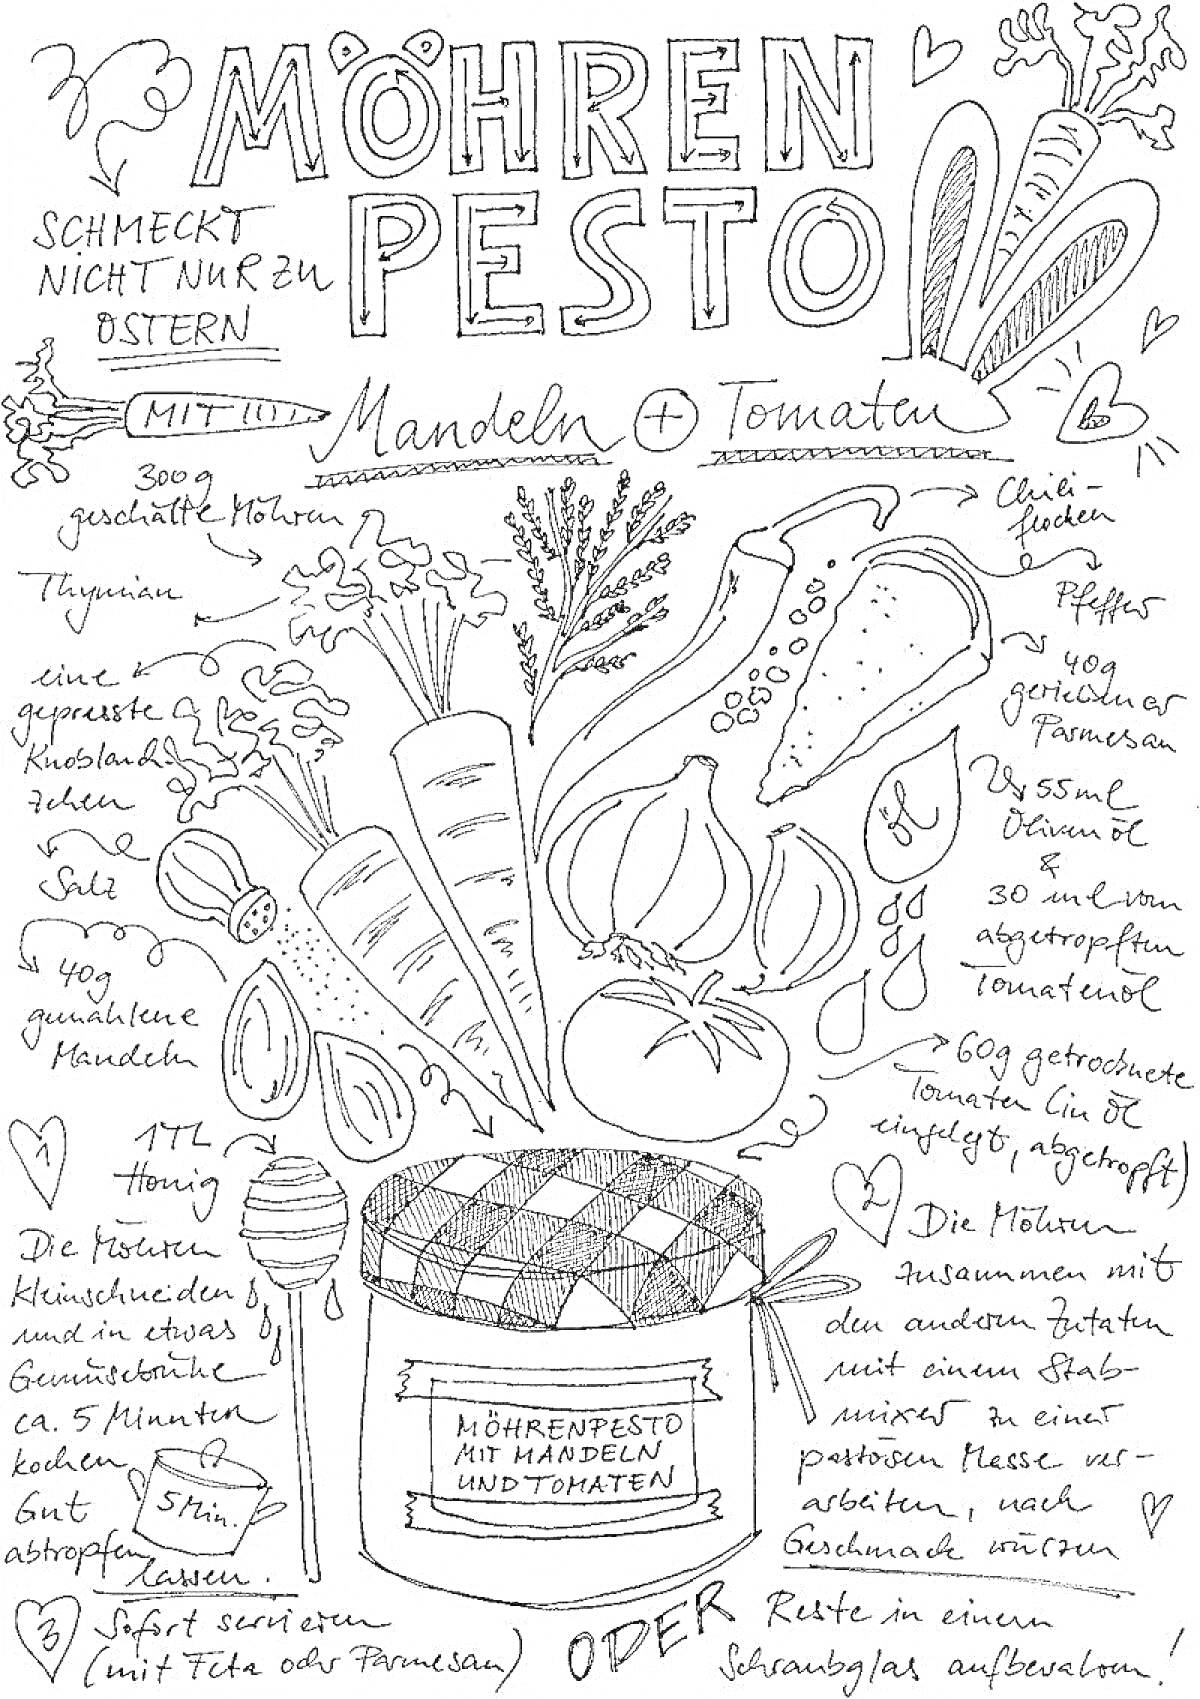 MÖHREN
PESTO
SCHMECKT
NICHT NUR ZU
OSTERN
MIT
Mandeln + Tomaten
300g
geschälte Möhren
Thymian
eine
gepresste
Knoblauch
zehen
Salz
40g
gemahlene
Mandeln
1TL
Honig
Chili-
flocken
Pfeffer
40g
geriebener
Parmesan
öl
55ml
Olivenöl
&
30 ml vom
abgetropften
Tomatenöl
60g getrocknete
Tomaten (in Öl
eingelegt, abgetropft)
1
Die Möhren
kleinschneiden
und in etwas
Gemüsebrühe
ca. 5 Minuten
kochen
Gut
abtropfen
lassen.
5 Min.
MÖHRENPESTO
MIT MANDELN
UND TOMATEN
2
Die Möhren
zusammen mit
den anderen Zutaten
mit einem Stab-
mixer zu einer
pastösen Masse ver-
arbeiten, nach
Geschmack würzen
3
Sofort servieren
(mit Feta oder Parmesan)
ODER
Reste in einem
Schraubglas aufbewahren!